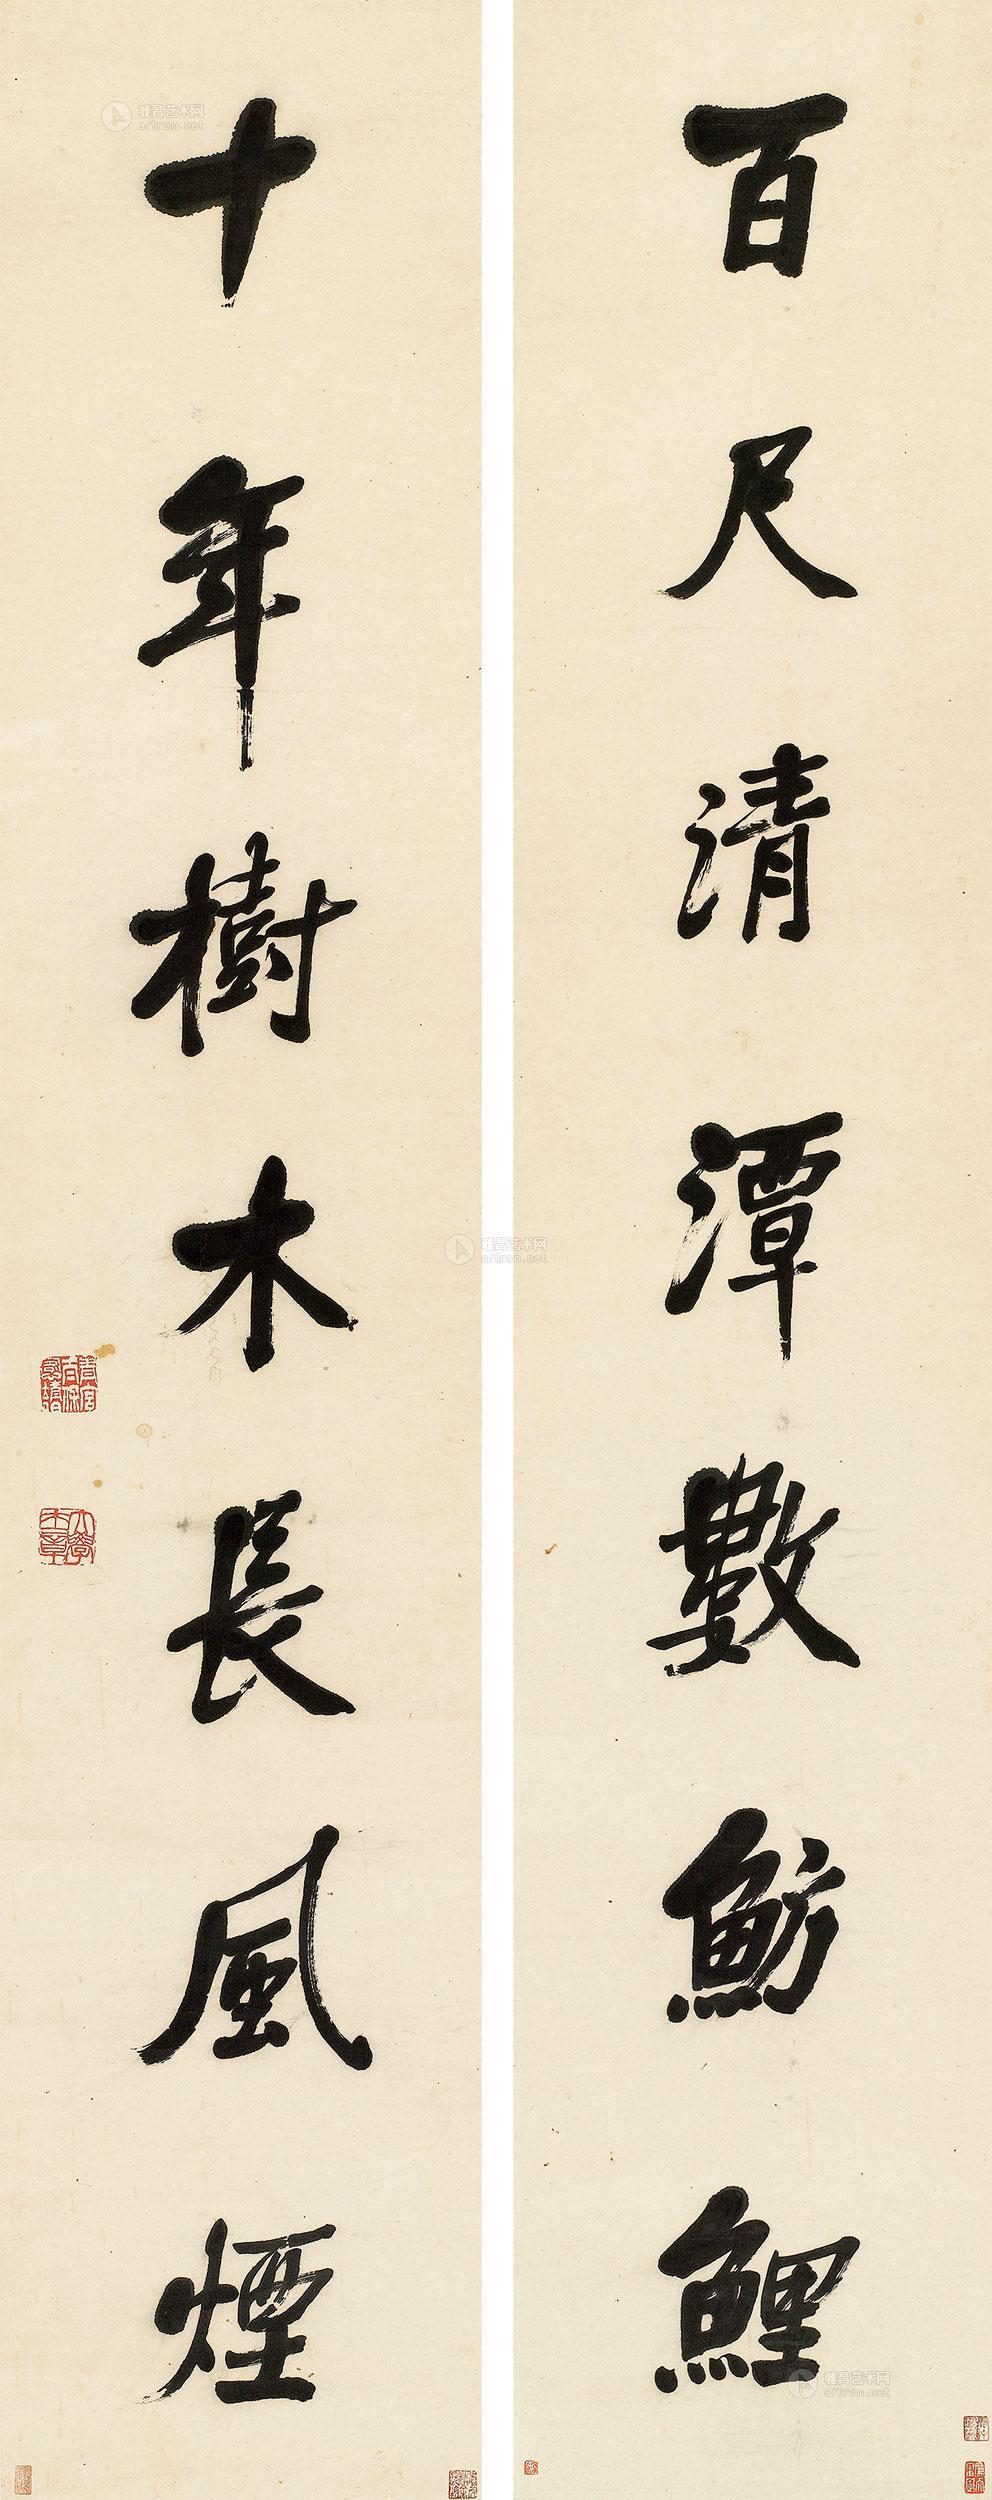 百尺清潭數魴鯉
十年樹木長風煙
雅昌艺术网
artron.net
雅昌艺术网
artron.net
雅昌艺术网
artron.net